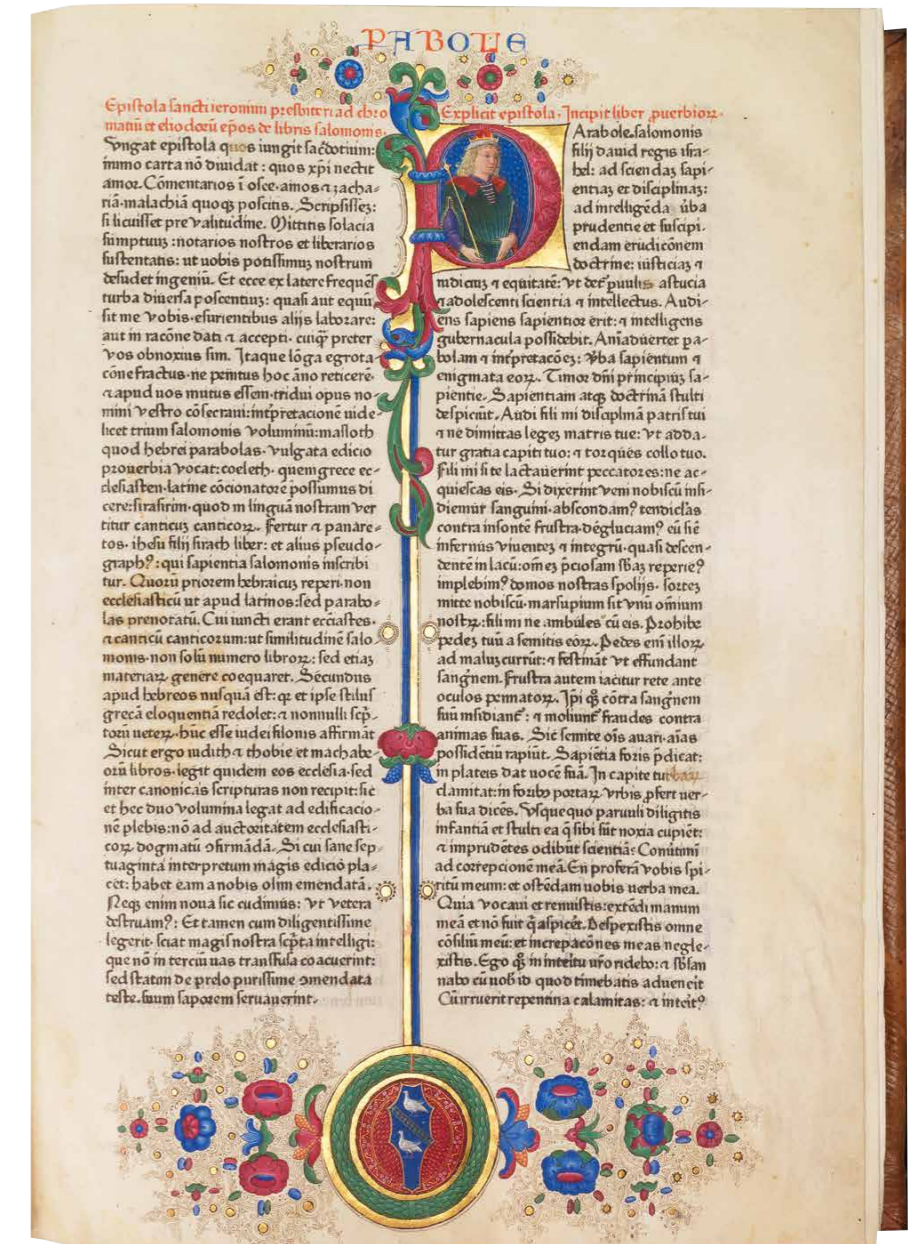 PABOLIE
Epistola sancti ieronimi presbiteri ad chro
matiū et eliodorū ep̄os de libris salomonis.
Vngat epistola quos iungit sac̄dotium:
immo carta nō diuidat: quos xp̄i nectit
amor. Cōmentarios ī osce. amos ⁊ zacha-
riā. malachiā quoqꝫ poscitis. Scripsisseꝫ:
si licuisset pre valitudine. Mittitis solacia
sumptuuꝫ: notarios nostros et librarios
sustentatis: ut uobis potissimuꝫ nostrum
desudet ingeniū. Et ecce ex latere frequēs
turba diuersa poscentiuꝫ: quasi aut equū
sit me vobis. esurientibus alijs laborare:
aut in racōne dati ⁊ accepti. cuiqꝫ preter
vos obnoxius sim. Itaque lōga egrota-
cōne fractus. ne penitus hoc āno reticerē.
⁊ apud uos mutus essem. tridui opus no-
mini vestro cōsecraui: int̄pretacionē uide-
licet trium salomonis voluminū: masloth
quod hebrei parabolas. vulgata edicio
prouerbia vocat: coeleth. quem grece ec-
clesiasten. latine cōcionatorē possumus di
cere: sirasirim. quod in linguā nostram ver
titur canticuꝫ canticoꝝ. Fertur ⁊ panare-
tos. ihesu filij sirach liber: et alius pseudo-
graphꝰ: qui sapientia salomonis inscribi
tur. Quorū priorem hebraicuꝫ reperi. non
ecclesiasticū ut apud latinos: sed parabo-
las prenotatū. Cui iuncti erant ecc̄iastes.
⁊ canticū canticorum: ut similitudinē salo
monis. non solū numero libroꝝ: sed etiaꝫ
materiaꝝ genere coequaret. Secundus
apud hebreos nusquā est: qꝛ et ipse stilus
grecā eloquentiā redolet: ⁊ nonnulli scp̄-
torū ueteꝝ. huc esse iudei filonis affirmāt
Sicut ergo iudith ⁊ thobie et machabe-
orū libros. legit quidem eos ecclesia. sed
inter canonicas scripturas non recipit: sic
et hec duo volumina legat ad edificacio-
nē plebis: nō ad auctoritatem ecclesiasti-
coꝝ dogmatū ꝯfirmādā. Si cui sane sep-
tuaginta interpretum magis edicio pla-
cet: habet eam a nobis olim emendatā.
Neqꝫ enim noua sic cudimus: vt vetera
destruamꝰ: Et tamen cum diligentissime
legerit. sciat magis nostra scp̄ta intelligi:
que nō in terciū uas transfusa coacuerint:
sed statim de prelo purissime ꝯmendata
teste. suum saporem seruauerint.
Explicit epistola. Incipit liber ꝓuerbioꝝ.
Parabole salomonis
filij dauid regis isra-
hel: ad sciendaꝫ sapi-
entiaꝫ et disciplinaꝫ:
ad intelligēda ūba
prudentie et suscipi-
endam erudicōnem
doctrine: iusticiaꝫ ⁊
iudiciuꝫ ⁊ equitatē: vt det̄ puulis astucia
⁊ adolescenti scientia ⁊ intellectus. Audi-
ens sapiens sapientior erit: ⁊ intelligens
gubernacula possidebit. Aniaduertet pa-
bolam ⁊ int̄pretacōeꝫ: Vba sapientum ⁊
enigmata eoꝝ. Timor dn̄i principiuꝫ sa-
pientie. Sapientiam atqꝫ doctrinā stulti
despiciūt. Audi fili mi disciplinā patris tui
⁊ ne dimittas legeꝫ matris tue: vt adda-
tur gratia capiti tuo: ⁊ torques collo tuo.
Fili mi si te lactauerint peccatores: ne ac-
quiescas eis. Si dixerint veni nobiscū insi-
diemur sanguini. abscondamꝰ tendiclas
contra insontē frustra. deglucíamꝰ eū sic̄
infernus viuenteꝫ ⁊ integrū. quasi descen-
dentē in lacū: om̄eꝫ p̄ciosam sb̄aꝫ reperieꝰ
implebimꝰ domos nostras spolijs. sorteꝫ
mitte nobiscū. marsupium sit vnū omnium
nostꝝ: fili mi ne ambules cū eis. Prohibe
pedeꝫ tuū a semitis eoꝝ. Pedes eni illoꝝ
ad maluꝫ currūt: ⁊ festināt vt effundant
sang̃nem. Frustra autem iacitur rete ante
oculos pennatoꝝ. Ipi qꝫ cōtra sang̃nem
suū insidiant̄: ⁊ moliunt̄ fraudes contra
animas suas. Sic semite oīs auari. aīas
possidētiū rapiūt. Sapiētia foris p̄dicat:
in plateis dat uocē suā. In capite turbaꝝ
clamitat: in foribꝰ portaꝝ vrbis ꝓfert uer-
ba sua dicēs. Vsquequo paruuli diligitis
infantiā et stulti ea q̄ sibi sūt noxia cupiēt:
⁊ imprudētes odibūt scientiā: Conūtimi
ad correpcionē meā. En proferā vobis spi-
ritū meum: et ostēdam uobis uerba mea.
Quia vocaui et renuistis: extēdi manum
meā et nō fuit q̄ aspicēt. Despexistis omne
cōsiliū meū: et increpacōnes meas negle-
xistis. Ego qꝫ in interitu vr̄o ridebo: ⁊ sb̄san
nabo cū uob̄ id quod timebatis aduenerit
Cū irruerit repentina calamitas: ⁊ interitꝰ